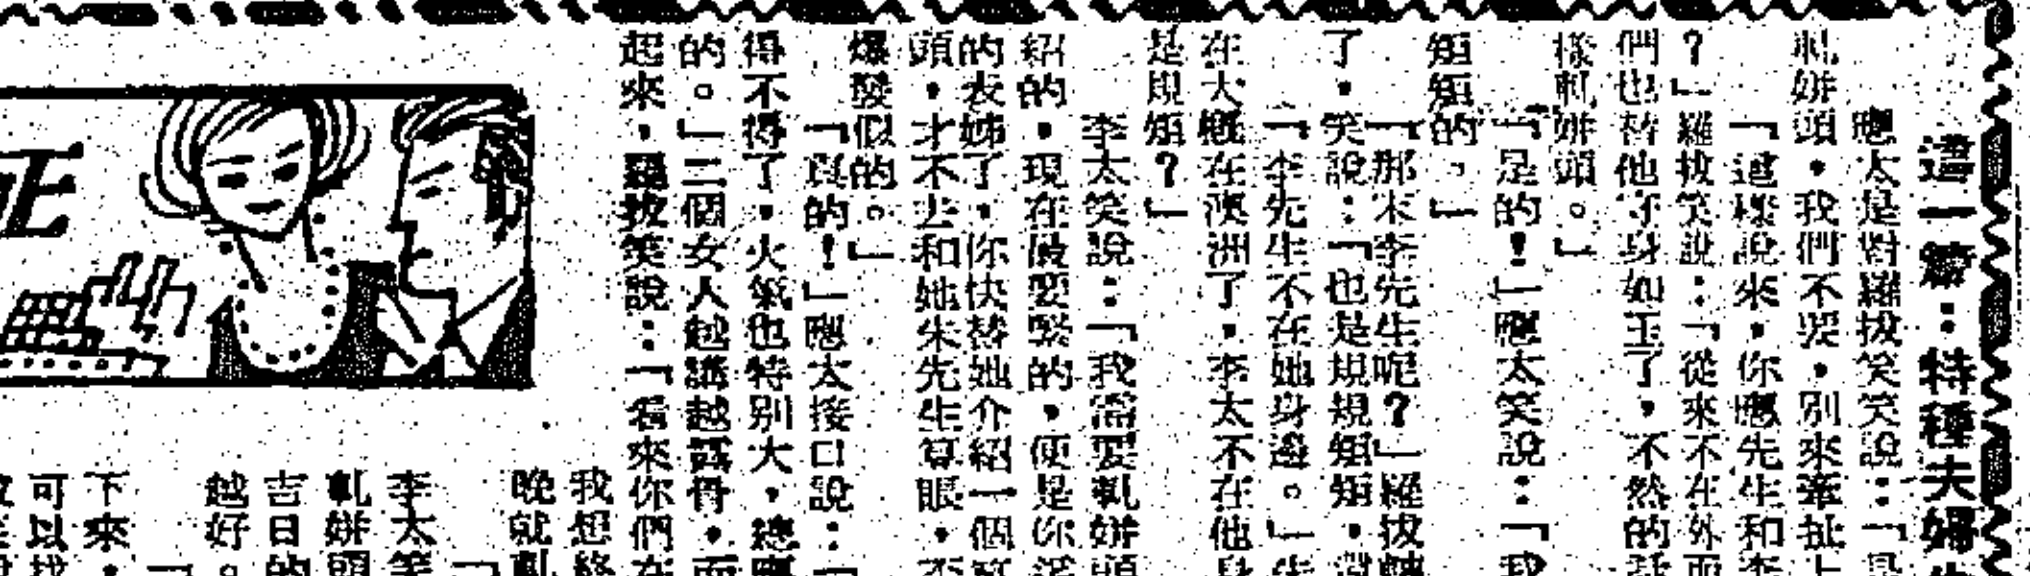 這一篇：特種夫婦
應太是對羅拔笑笑說：「是
軋姘頭，我們不要，別來牽扯上
「這樣說來，你應先生和李
？」羅拔笑說：「從來不在外面
們也替他守身如玉了，不然的話
樣軋姘頭。」
「是的！」應太笑說：「我
短短的，」
「那末李先生呢？」羅拔轉
了，笑說：「也是規規矩矩，
「李先生不在她身邊。」
在大概在澳洲了，李太不在他身
是規矩？」
李太笑說：「我需要軋姘頭
紹的，現在最要緊的，便是你
的表姊了，你快替她介紹一個
頭，才不去和她朱先生算賬，否
爆發似的。」
「真的！」應太接口說：「
得不得了，火氣也特別大，總
的。」二個女人越講越露骨，而
起來，羅拔笑說：「看來你們在
我想終
晚就軋
「
李太笑
軋姘頭
吉日的
越好。
「
下來，
可以找